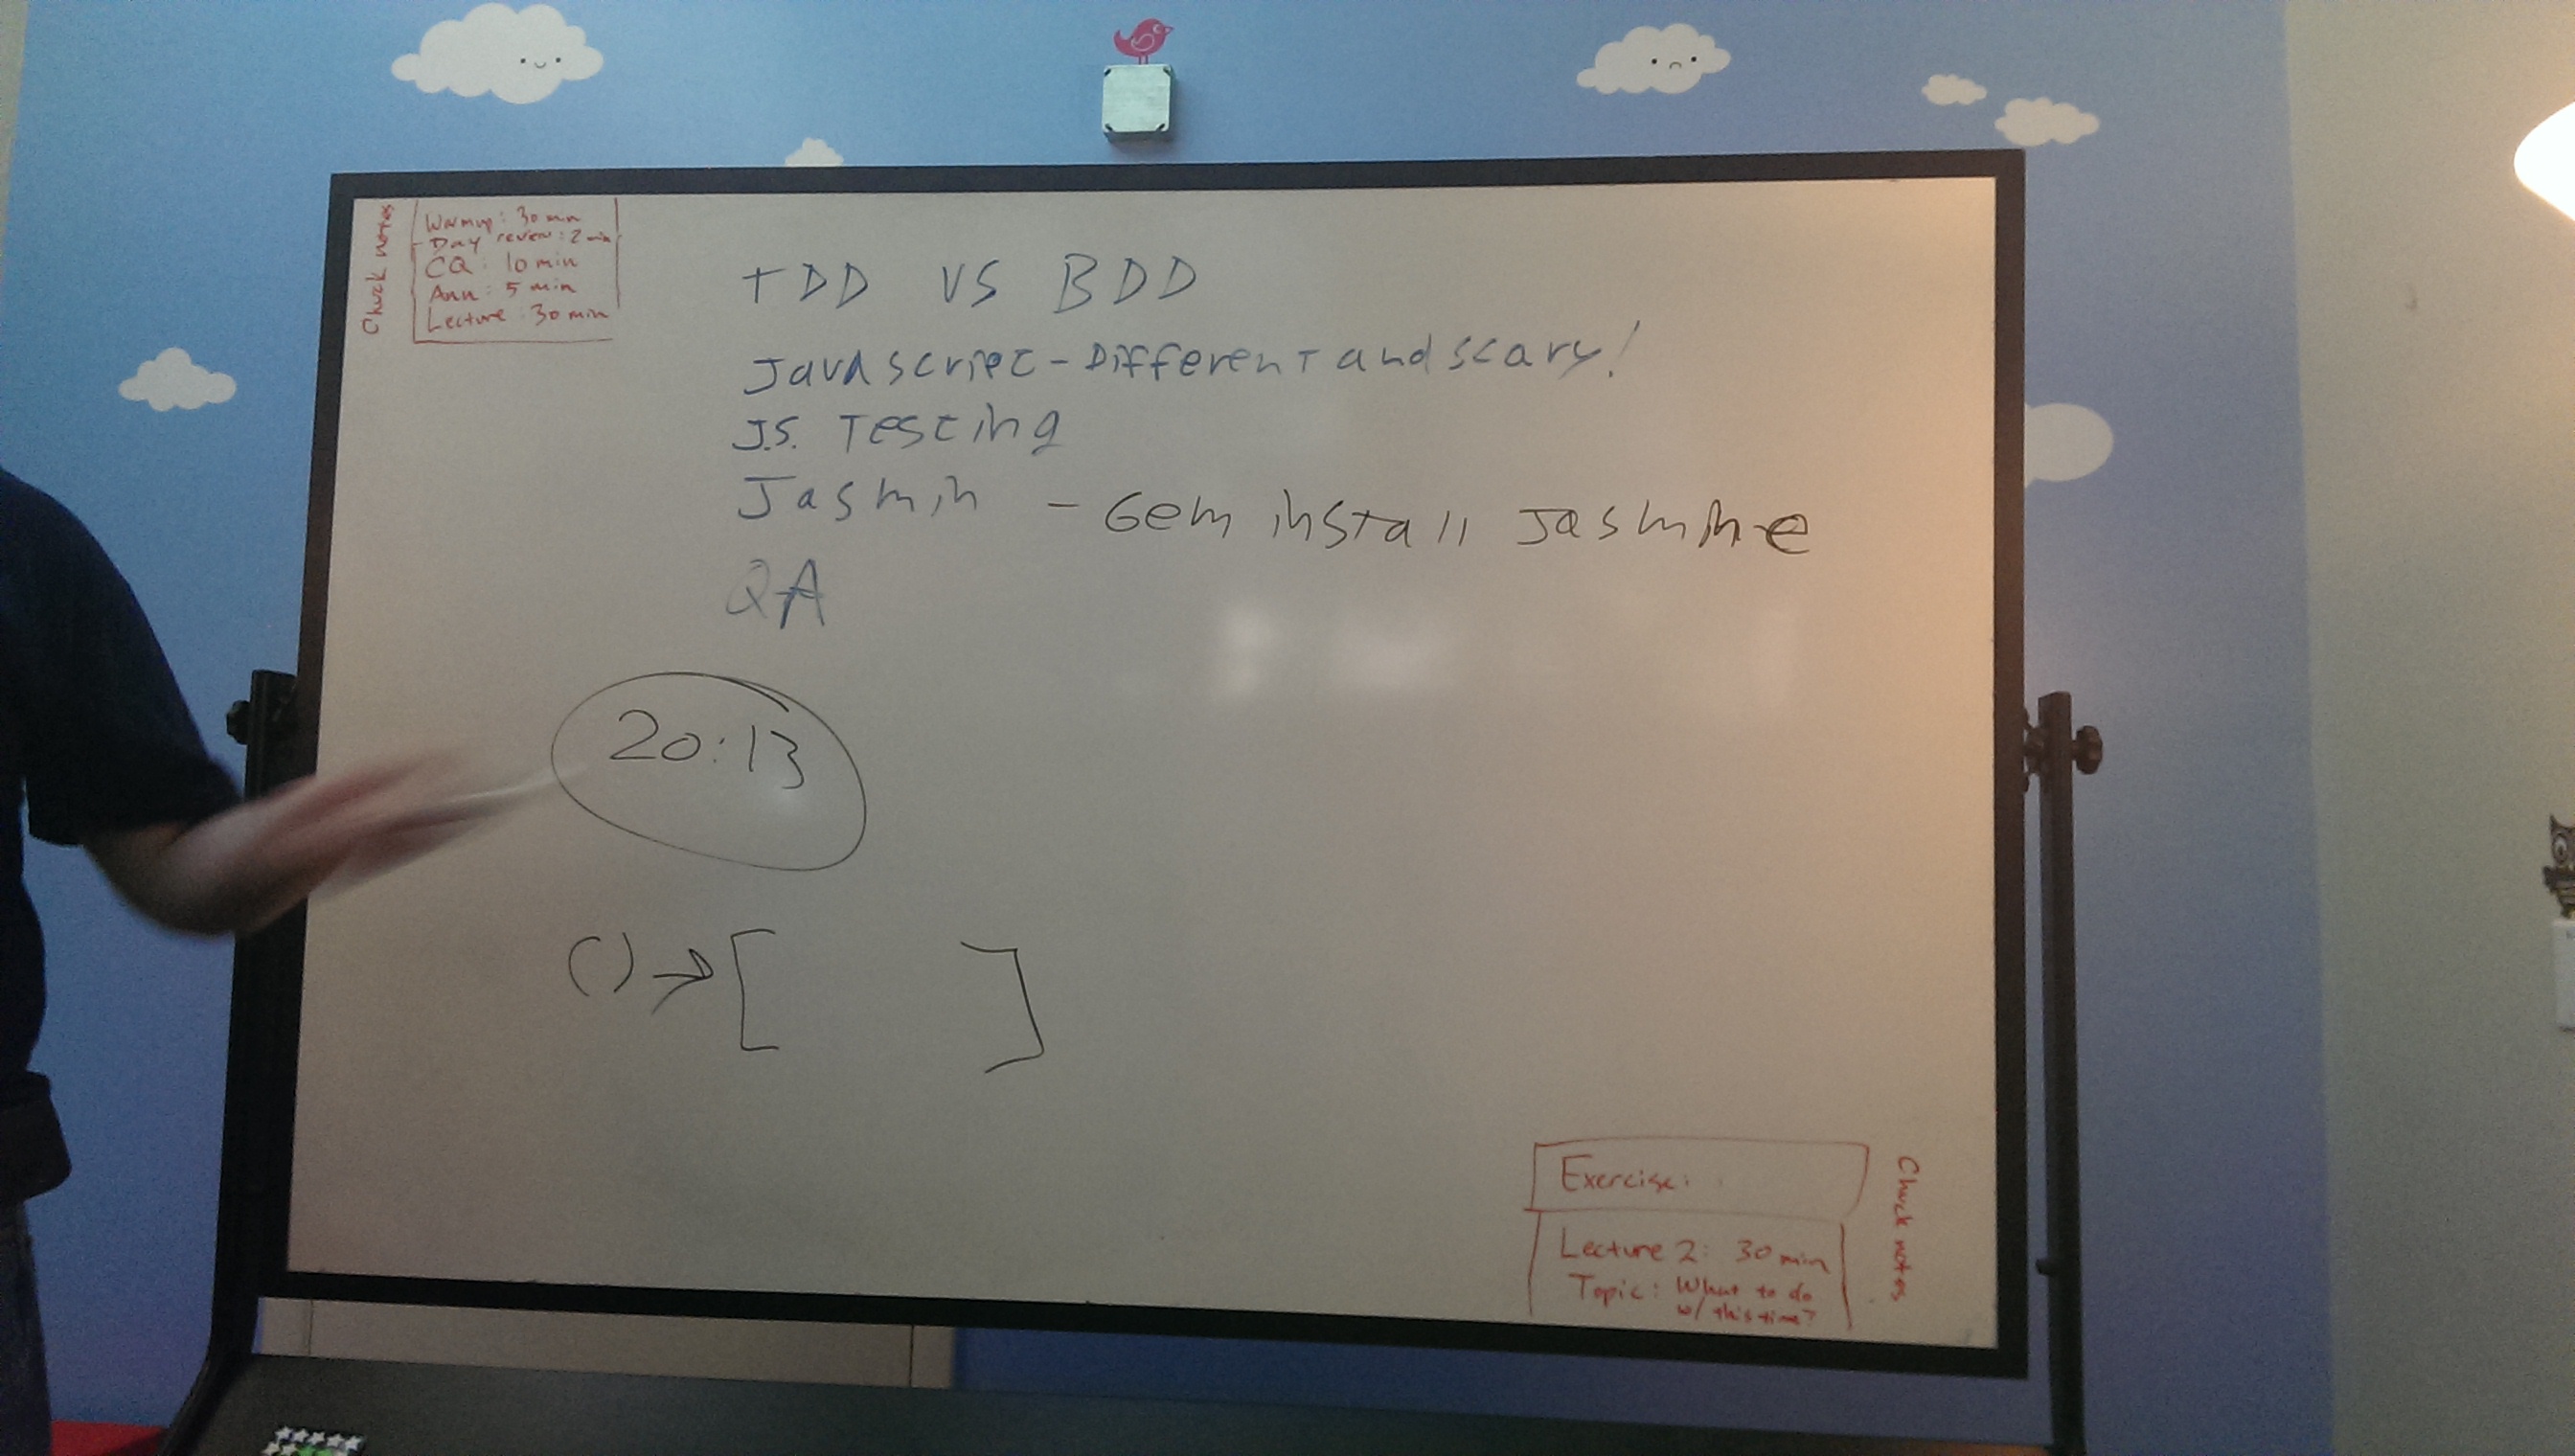 Chuck notes
Warmup: 30 min
Day review: 2 min
CQ: 10 min
Ann: 5 min
Lecture: 30 min
TDD VS BDD
Javascript - Different and scary!
J.S. Testing
Jasmin - Gem install Jasmine
QA
20:13
() → [ ]
Exercise:
Lecture 2: 30 min
Topic: What to do
w/ this time?
Chuck notes